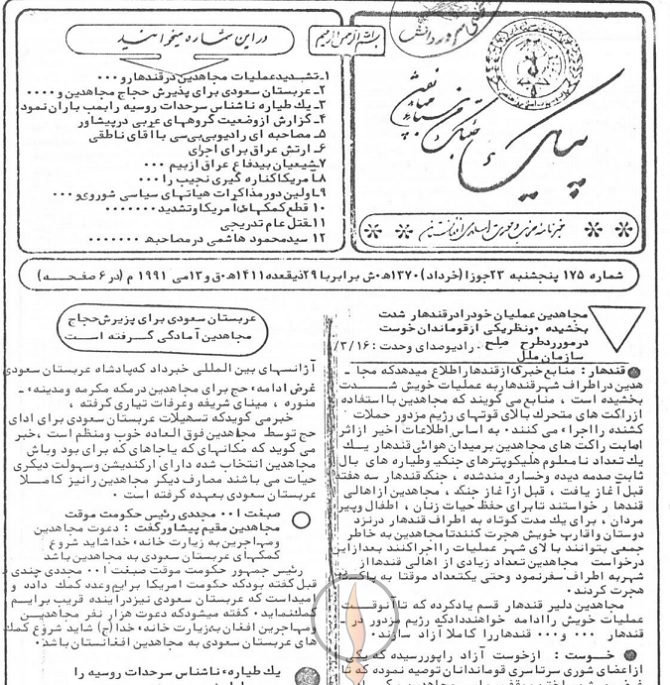 در این شماره میخوانید
۱ـ تشدید عملیات مجاهدین در قندهار و ۰۰۰
۲ـ عربستان سعودی برای پذیرش حجاج مجاهدین و ۰۰۰۰
۳ـ یك طیاره ناشناس سرحدات روسیه را بمب باران نمود
۴ـ گزارش از وضعیت گروههای عربی در پیشاور
۵ـ مصاحبه ای رادیو بی بی سی با آقای ناطقی
۶ـ ارتش عراق برای اجرای
۷ـ شیعیان بیدفاع عراق از بیم ۰۰۰
۸ـ امریکا کناره گیری نجیب را ۰۰۰
۹ـ اولین دور مذاکرات هیاتهای سیاسی شوروی و ۰۰۰
۱۰ قطع کمکهای امریکا و تشدید ۰۰۰۰۰۰۰
۱۱ـ قتل عام تدریجی
۱۲ سید محمود هاشمی در مصاحبه ۰۰۰۰۰۰۰
بسم الله الرحمن الرحیم
پیک
شماره ۱۷۵ پنجشنبه ۲۳ جوزا (خرداد) ۱۳۷۰ ه‍۰ش برابر با ۲۹ ذیقعده ۱۴۱۱ ه‍۰ق و ۱۳ می ۱۹۹۱ م (در ۶ صفحـــه)
مجاهدین عملیان خود را در قندهار شدت
بخشیده ۰ ونظر یکی از قوماندان خوست
در مورد طرح صلح ـ رادیو صدای وحدت : ۳/۱۶/
سازمان ملل
قندهار : منابع خبرگ از قندهار اطلاع میدهد که مجا ـ
هدین در اطراف شهر قندهار به عملیات خویش شـــدت
بخشیده است ، منابع می گویند که مجاهدین با استفاده
از راکت های متحرك بالای قوتهای رژیم مزدور حملات
کشنده را اجراء می کنند۰ به اساس اطلاعات اخیر از اثر
اصابت راکت های مجاهدین بر میدان هوائی قندهار یــك
یك تعداد نامعلوم هلیکوپترهای جنگی وطیاره های بال
ثابت صدمه دیده وخساره مند شده ، جنگ قندهار سه هفته
قبل آغاز یافت ، قبل از آغاز جنگ ، مجاهدین از اهالی
قندهار خواستند تا برای حفظ حیات زنان ، اطفال وپیر
مردان ، برای یك مدت کوتاه به اطراف قندهار در نزد
دوستان واقارب خویش هجرت کنند تا مجاهدین به خاطر
جمعی بتوانند بالای شهر عملیات را اجرا کنند بعد از این
درخواست مجاهدین تعداد زیادی از اهالی قندهار از
شهر به اطراف سفر نمود وحتی یکتعداد موقتا به
هجرت کردند۰
مجاهدین دلیر قندهار قسم یاد کرده که تا آنوقت
عملیات خویش را ادامه خواهند داد که رژیم مزدور در ـ
قندهار ۰۰۰ و ۰۰۰ قندهار را کاملا آزاد سازند۰
خـــوست : از خوست آزاد راپور رسیده که یکی
از اعضای شوری سرتاسری قوماندانان توصیه نموده که
عربستان سعودی برای پزیرش حجاج
مجاهدین آمادگی گــرفته اســـت
آژانسهای بین المللی خبر داد که پادشاه عربستان سعودی
غرض ادامهء حج برای مجاهدین در مکه مکرمه ومدینهء ـ
منوره ، مینای شریفه وعرفات تیاری گرفته ،
خبر می گوید که تسهیلات عربستان سعودی برای ادای
حج توسط مجاهدین فوق العاده خوب ومنظم است ، خبر
می گوید که مکانهای که یا جاهای که برای بود وباش
مجاهدین انتخاب شده دارای ارکندیشن وسهولت دیگری
حیات می باشند مصارف دیگر مجاهدین را نیز کامـــلا
عربستان سعودی بعهده گرفته است ۰
صبغت ا۰۰ مجددی رئیس حکومت موقت
مجاهدین مقیم پیشاور گفت : دعوت مجاهدین
ومهاجرین به زیارت خانهء خدا شاید شروع
کمکهای عربستان سعودی به مجاهدین باشد
رئیس جمهور حکومت موقت صبغت ا۰۰ مجددی چندی
قبل گفته بود که حکومت امریکا برایم وعده کمك داده و
امید است که عربستان سعودی نیز در آینده قریب برایم
کمك نماید۰ گفته میشود که دعوت هزار نفر مجاهدیــن
ومهاجرین افغان به زیارت خانهء خدا (ج) شاید شروع کمك
های عربستان سعودی به مجاهدین افغانستان باشد۰
یك طیارهء ناشناس سرحدات روسیه را